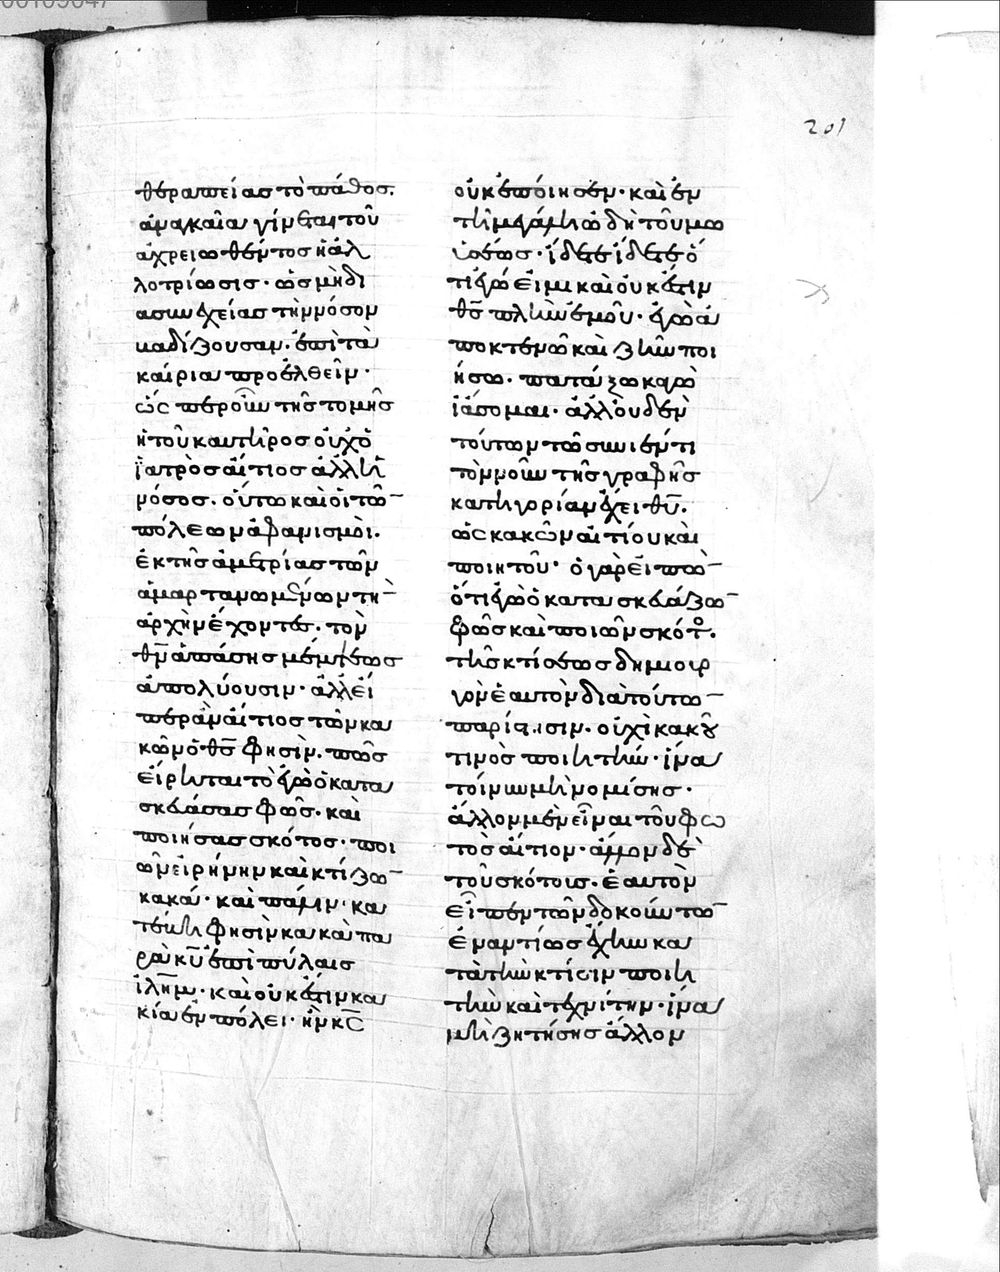 201
θεραπείας τὸ πάθος.
ἀναγκαῖα γίνεται τοῦ
ἀχρειωθέντος ἡ ἀλ
λοτρίωσις· ὡς μὴ δι
ασυνεχείας τὴν νόσον
βαδίζουσαν. ἐπὶ τὰ
καίρια προελθεῖν·
ὡς περ οὖν τῆς τομῆς
ἢ τοῦ καυτῆρος οὐχ ὁ
ἰατρὸς αἴτιος ἀλλ' ἡ
νόσος. οὕτω καὶ οἱ τῶ̅
πόλεων ἀφανισμοὶ.
ἐκ τῆς ἀμετρίας τῶν
ἁμαρτανομένων τὴ̅
ἀρχὴν ἔχοντες. τὸν
θν̅ ἁπάσης μέμψεως
ἀπολύουσιν· ἀλλ' εἴ
περ ἀναίτιος τῶν κα
κῶν ὁ θς̅ φησὶν. πῶς
εἴρηται τὸ ἐγὼ ὁ κατα
σκευάσας φῶς. καὶ
ποιήσας σκότος· ποι
ῶν εἰρήνην καὶ κτίζω̅
κακά· καὶ πάλιν· κα
τέβη φησὶν κακὰ πα
ρὰ κυ̅ ἐπὶ πύλας
ιλη̅μ· καὶ οὐκ ἔστιν κα
κία ἐν πόλει· ἣν κς̅
οὐκ ἐποίησεν· καὶ ἐν
τῆ μεγάλη ὠδῆ τοῦ μω
ϋσέως· ἴδετε ἴδετε ὅ
τι ἐγώ εἰμι καὶ οὐκ ἔστιν
θς̅ πλὴν ἐμοῦ· ἐγὼ ἀ
ποκτενῶ καὶ ζῆν ποι
ήσω. πατάξω κἀγὼ
ἰάσομαι. ἀλλ' οὐδὲν
τούτων τῶ συνιέντι
τὸν νοῦν τῆς γραφῆς
κατηγορίαν ἔχει θυ̅.
ὡς κακῶν αἰτίου καὶ
ποιητοῦ· ὁ γὰρ εἰπὼ̅
ὅτι ἐγὼ ὁ κατασκευάζω̅
φῶς καὶ ποιῶν σκότο.
τῆς κτίσεως δημιουρ
γὸν ἑαυτὸν διὰ τούτω̅
παρίστησιν. οὐχὶ κακοῦ
τινὸς ποιητήν· ἵνα
τοίνυν μὴ νομίσης·
ἄλλον μὲν εἶναι τοῦ φω
τὸς αἴτιον· ἄλλον δὲ
τοῦ σκότους. ἑαυτὸν
εἶπεν τῶν δοκούντω̅
ἐναντίως ἔχειν κα
τὰ τὴν κτίσιν ποιη
τὴν καὶ τεχνίτην· ἵνα
μὴ ζητήσης ἄλλον